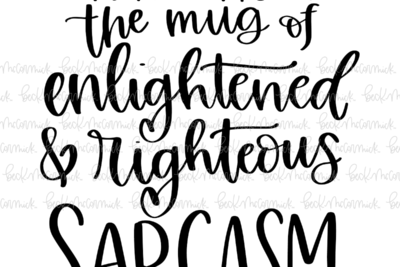 the mug of
enlightened
& righteous
SARCASM